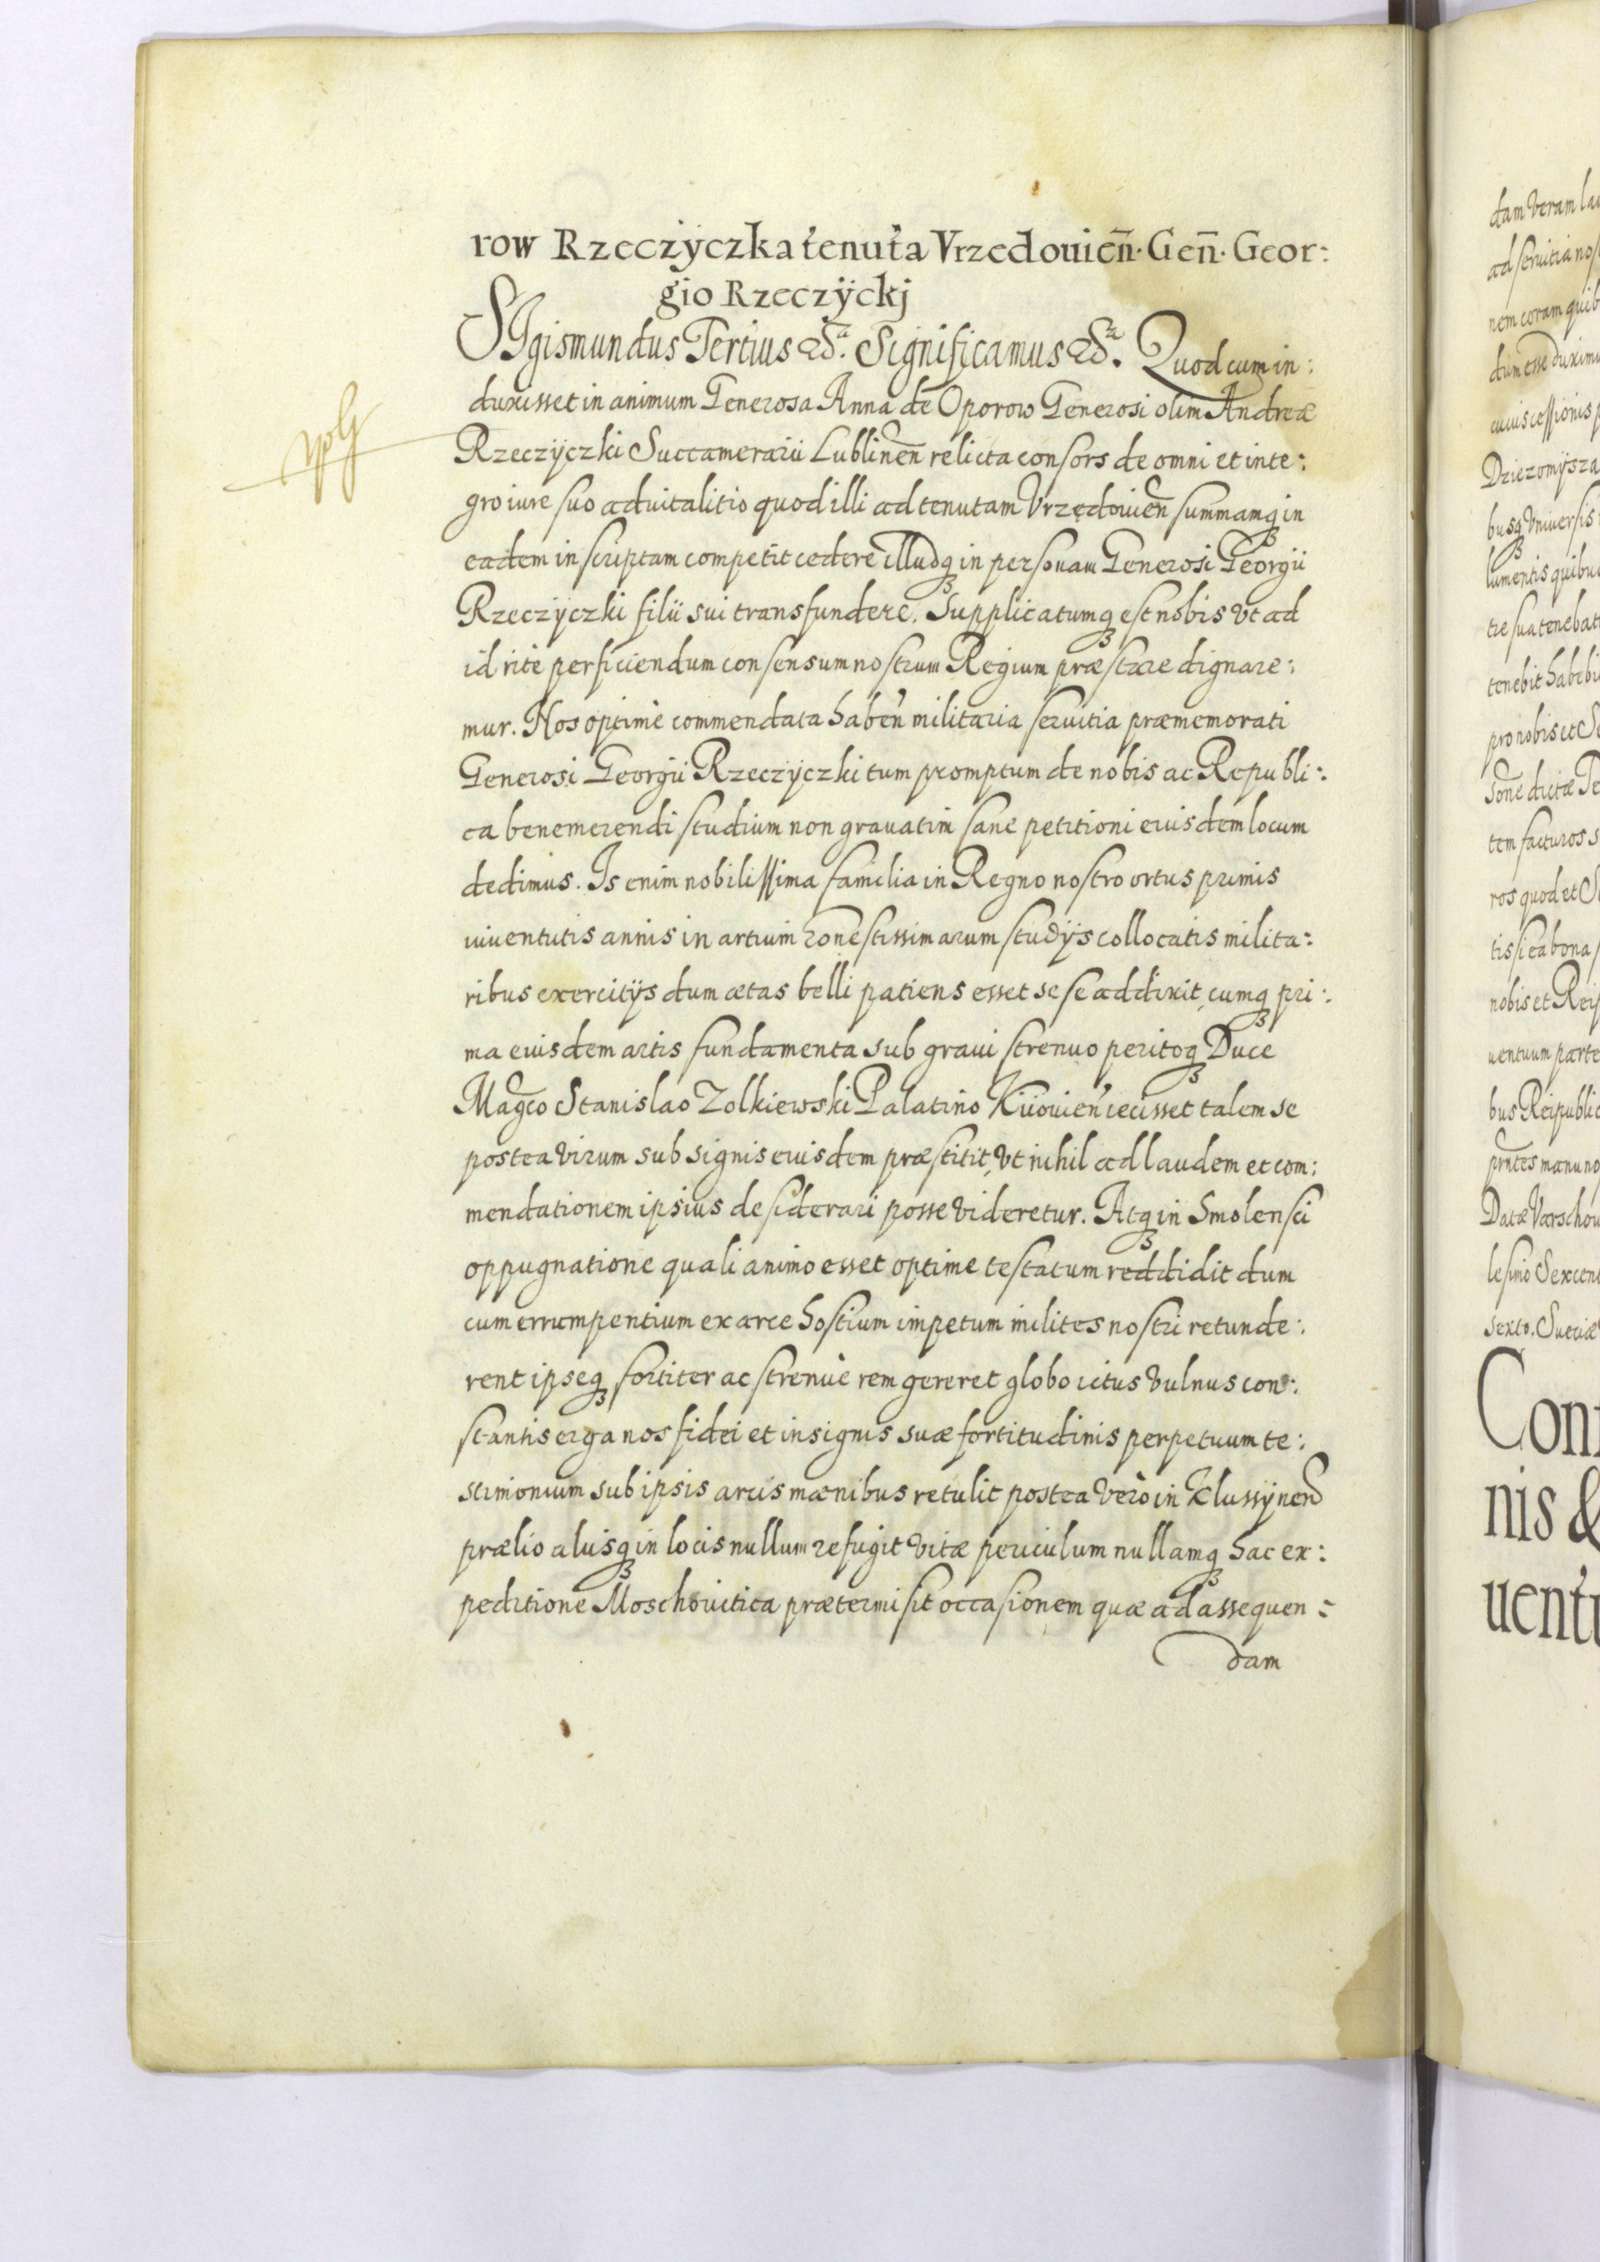 row Rzeczÿczka tenuta Vrzedouien̄. Gen̄. Geor:
gio Rzeczÿckj
SIgismundus Tertius &ca. Significamus &ca. Quod cum in:
duxisset in animum Generosa Anna de Oporow Generosi olim Andreæ
Rzeczÿczki Succamerarii Lublinen̄ relicta consors de omni et inte:
gro iure suo aduitalitio quod illi ad tenutam Vrzędouien̄ summamqꝫ in
eadem inscriptam competit cedere illudqꝫ in personam Generosi Georgii
Rzeczÿczki filii sui transfundere. Supplicatumqꝫ est nobis vt ad
id ritè perficiendum consensum nostrum Regium præstare dignare:
mur. Nos optimè commendata haben̄ militaria seruitia præmemorati
Generosi Georgii Rzeczÿczki tum promptum de nobis ac Republi:
ca benemerendi studium non grauatim sane petitioni eiusdem locum
dedimus. Is enim nobilissima familia in Regno nostro ortus primis
iuuentutis annis in artium honestissimarum studÿs collocatis milita:
ribus exercitÿs dum ætas belli patiens esset sese addixit, cumqꝫ pri:
ma eiusdem artis fundamenta sub graui strenuo peritoqꝫ Duce
Magco Stanislao Zolkiewski Palatino Kiiouien̄ iecisset talem se
postea virum sub signis eiusdem præstitit, vt nihil ad laudem et com:
mendationem ipsius desiderari posse videretur. Atqꝫ in Smolensci
oppugnatione quali animo esset optime testatum reddidit dum
cum errumpentium ex arce hostium impetum milites nostri retunde:
rent ipseqꝫ fortiter ac strenuè rem gereret globo ictus vulnus con:
stantis erga nos fidei et insignis suæ fortitudinis perpetuum te:
stimonium sub ipsis arcis mœnibus retulit postea verò in Klussÿnen̄
prælio aliisqꝫ in locis nullum refugit vitæ periculum nullamqꝫ hac ex:
peditione Moschouitica prætermisit occasionem quæ ad assequen:
dam
dam veram lau
ad seruitia nos
nem coram quib
dum esse duximu
cuius cessionis p
busqꝫ vniuersis
lumentis quibu
tre sua tenebat
tenebit habebi
pro nobis et S
tem facturos s
ros quod et S
tis si ea bona
nobis et Reip
uentuum parte
bus Reipublic
prn̄tes manu no
Datæ Varschou
lesimo Sexcen
sexto. Sueciæ
Con
nis &
uent